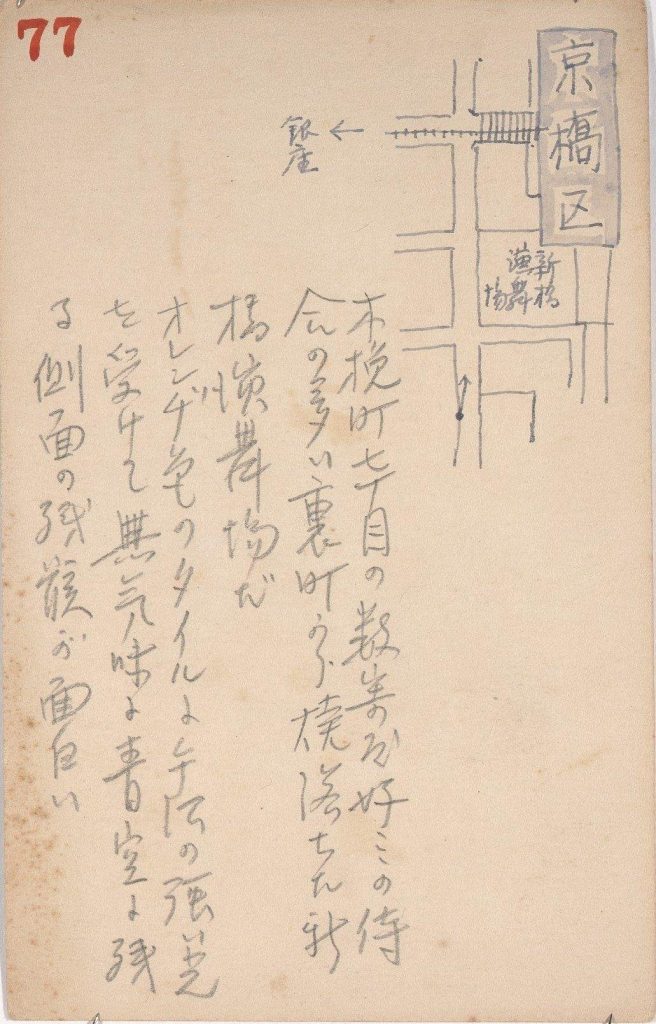 77
京橋区
銀座
新橋
演舞
場
木挽町七丁目の数寄屋好ミの待
合の多い裏町から焼落ちた新
橋演舞場だ
オレンヂ色のタイルに午後の強い光
を受けて無気味な青空に残
る側面の残骸が面白い